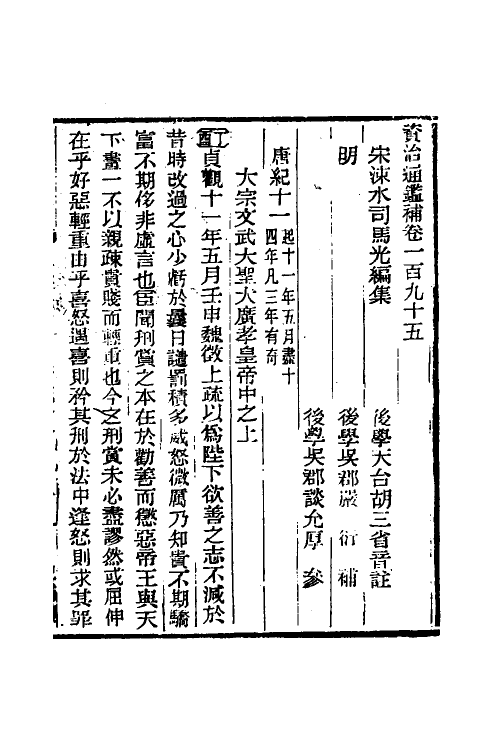 資治通鑑補卷一百九十五
宋涑水司馬光編集
後學天台胡三省音註
明
後學吳郡嚴衍補
後學吳郡談允厚參
唐紀十一起十一年五月盡十四年凡三年有奇
太宗文武大聖大廣孝皇帝中之上
丁酉貞觀十一年五月壬申魏徵上疏以爲陛下欲善之志不減於
昔時改過之心少虧於曩日譴罰積多威怒微厲乃知貴不期驕
富不期侈非虛言也臣聞刑賞之本在於勸善而懲惡帝王與天
下畫一不以親疎貴賤而輕重也今之刑賞未必盡謬然或屈伸
在乎好惡輕重由乎喜怒遇喜則矜其刑於法中逢怒則求其罪